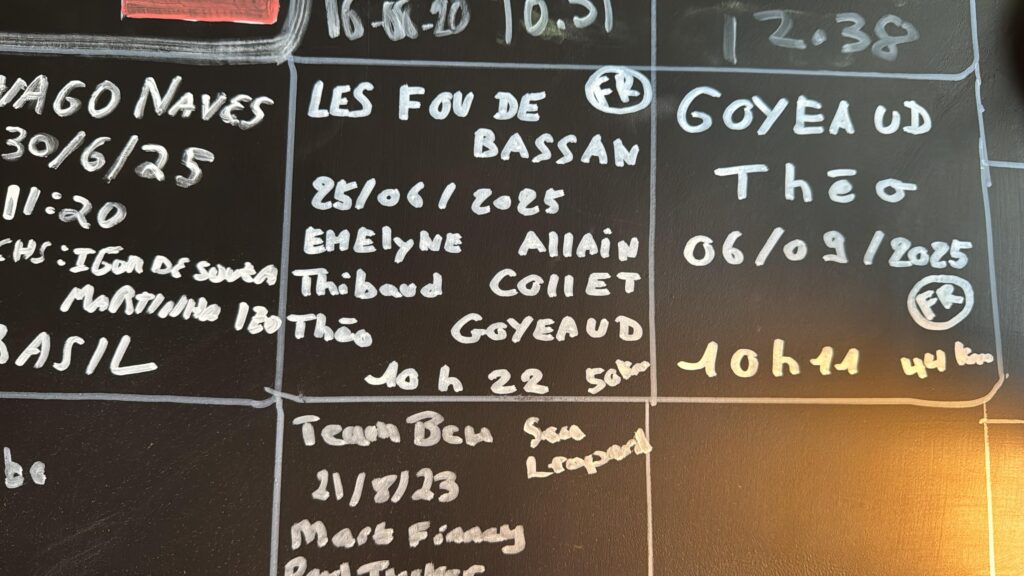 16-08-20 10.31
12.38
NAVES
30/6/25
11:20
IGOR DE SOUZA
MARTINHO
LES FOU DE FR
BASSAN
25/06/2025
EMElyNE ALLAiN
Thibaud COllET
Théo GOYEAUD
10 h 22 50km
GOYEAUD
Théo
06/09/2025
FR
10h11 44 km
Team Ben Sea
Leopard
21/8/23
Mark Finney
Paul Tucker